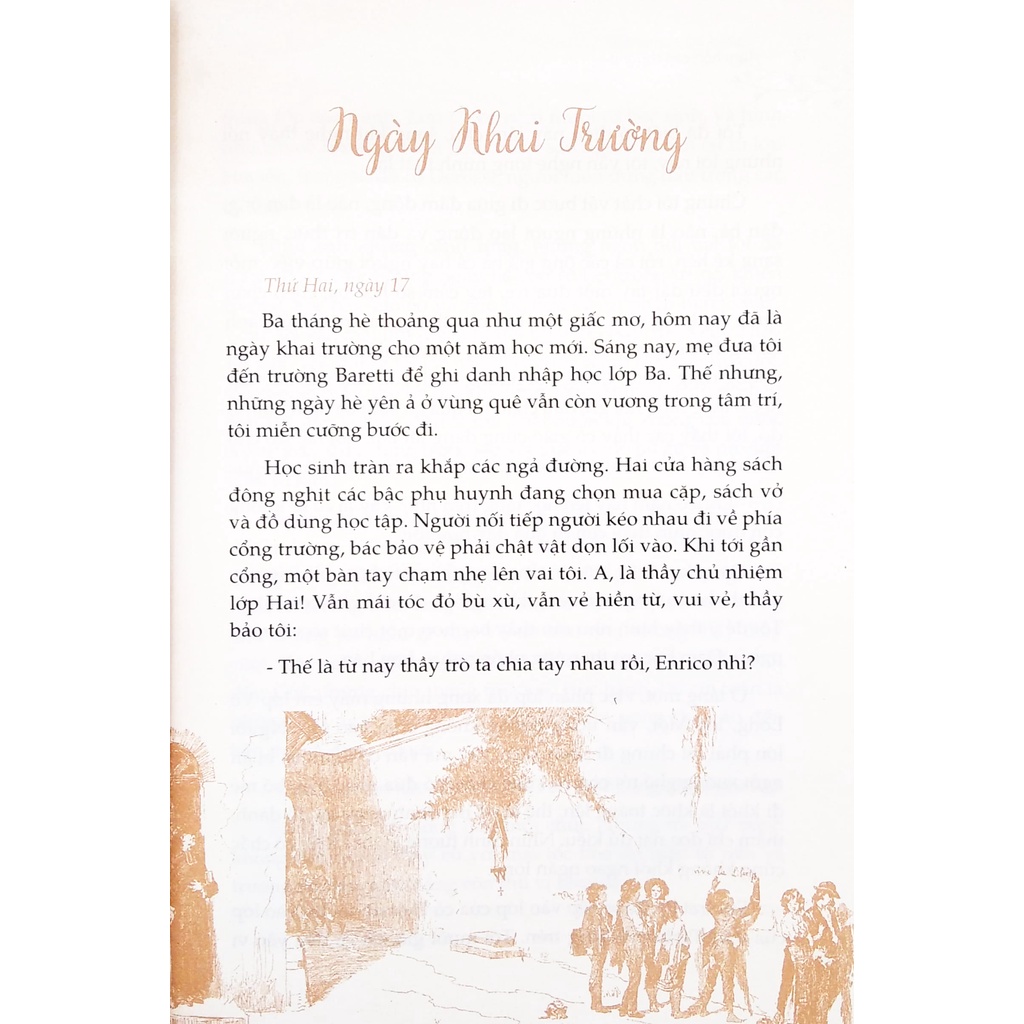 Ngày Khai Trường
Thứ Hai, ngày 17
Ba tháng hè thoảng qua như một giấc mơ, hôm nay đã là
ngày khai trường cho một năm học mới. Sáng nay, mẹ đưa tôi
đến trường Baretti để ghi danh nhập học lớp Ba. Thế nhưng,
những ngày hè yên ả ở vùng quê vẫn còn vương trong tâm trí,
tôi miễn cưỡng bước đi.
Học sinh tràn ra khắp các ngả đường. Hai cửa hàng sách
đông nghịt các bậc phụ huynh đang chọn mua cặp, sách vở
và đồ dùng học tập. Người nối tiếp người kéo nhau đi về phía
cổng trường, bác bảo vệ phải chật vật dọn lối vào. Khi tới gần
cổng, một bàn tay chạm nhẹ lên vai tôi. A, là thầy chủ nhiệm
lớp Hai! Vẫn mái tóc đỏ bù xù, vẫn vẻ hiền từ, vui vẻ, thầy
bảo tôi:
- Thế là từ nay thầy trò ta chia tay nhau rồi, Enrico nhỉ?